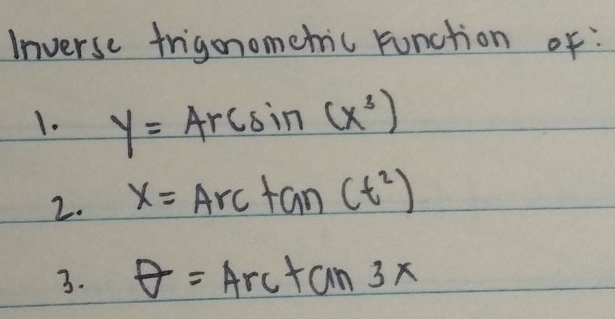 Inverse trigonometric Function of:
1. y = Arcsin (x³)
2. x = Arc tan (t²)
3. θ = Arctan 3x